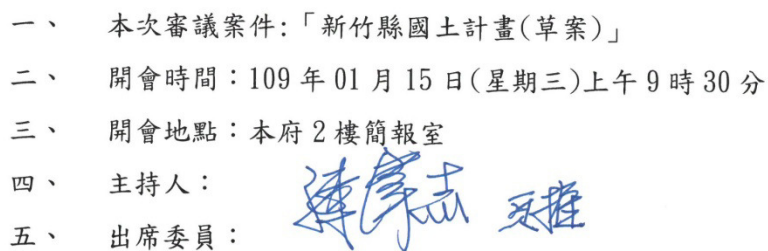 一、 本次審議案件:「新竹縣國土計畫(草案)」
二、 開會時間：109 年 01 月 15 日(星期三)上午 9 時 30 分
三、 開會地點：本府 2 樓簡報室
四、 主持人：
五、 出席委員：